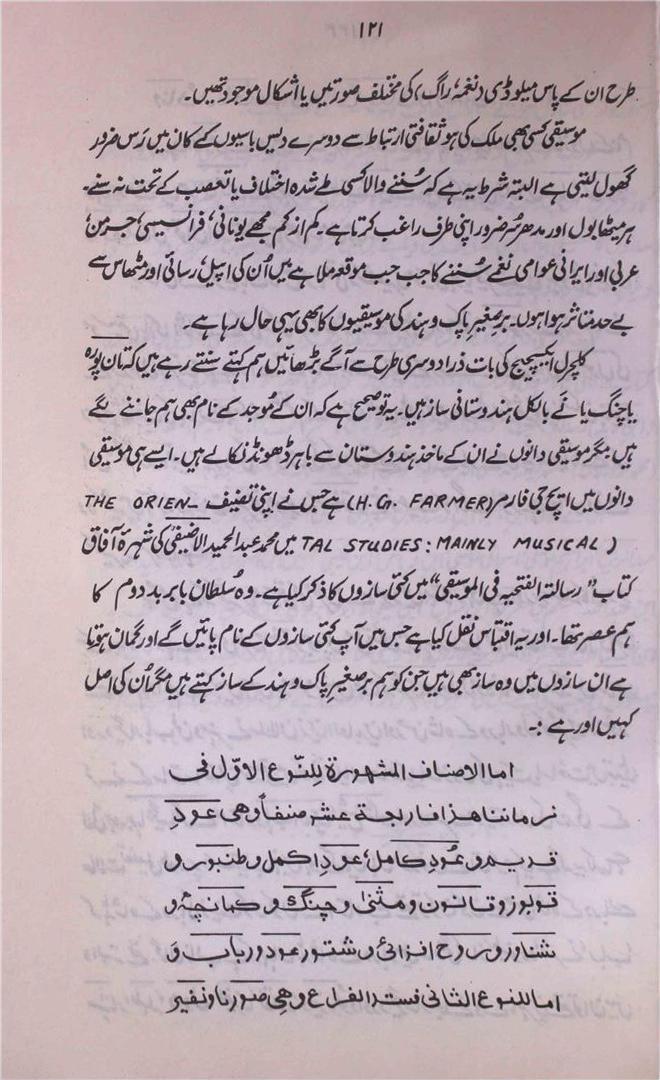 ۱۲۱
طرح ان کے پاس میلوڈی (نغمہ، راگ) کی مختلف صورتیں یا اشکال موجود تھیں۔
موسیقی کسی بھی ملک کی ہو ثقافتی ارتباط سے دوسرے دیس باسیوں کے کان میں رَس ضرور
گھول لیتی ہے البتہ شرط یہ ہے کہ سُننے والا کسی طے شدہ اختلاف یا تعصب کے تحت نہ سنے۔
ہر میٹھا بول اور مدھر سُر ضرور اپنی طرف راغب کرتا ہے۔ کم از کم مجھے یونانی، فرانسیسی، جرمن،
عربی اور ایرانی عوامی نغمے سُننے کا جب جب موقعہ ملا ہے میں اُن کی اپیل، رسائی اور مٹھاس سے
بے حد متاثر ہوا ہوں۔ برصغیرِ پاک و ہند کی موسیقیوں کا بھی یہی حال رہا ہے۔
کلچرل ایکسچینج کی بات ذرا دوسری طرح سے آگے بڑھائیں ہم کہتے سنتے رہے ہیں کہ تان پورہ
یا چنگ یا نَے بالکل ہندوستانی ساز ہیں۔ یہ تو صحیح ہے کہ ان کے مُوجد کے نام بھی ہم جاننے لگے
ہیں مگر موسیقی دانوں نے ان کے ماخذ ہندوستان سے باہر ڈھونڈ نکالے ہیں۔ ایسے ہی موسیقی
دانوں میں ایچ جی فارمر (H.G. FARMER) ہے جس نے اپنی تصنیف THE ORIEN-
TAL STUDIES: MAINLY MUSICAL) میں محمد عبدالحمید الاضیفی کی شہرۂ آفاق
کتاب "رسالتہ الفتحیہ فی الموسیقی" میں کئی سازوں کا ذکر کیا ہے۔ وہ سُلطان بابر ید دوم کا
ہم عصر تھا۔ اور یہ اقتباس نقل کیا ہے جس میں آپ کئی سازوں کے نام پائیں گے اور گمان ہوتا
ہے ان سازوں میں وہ ساز بھی ہیں جن کو ہم برصغیرِ پاک و ہند کے ساز کہتے ہیں مگر اُن کی اصل
کہیں اور ہے :۔
اما الاصناف المشہورة للنّوع الاوّل فی
زماننا ھذا فاربعة عشر صنفاً وھی عودِ
قدیم و عُودِ کامل، عودِ اکمل و طنبور و
قوبوز و قانون و مثنیٰ و چنگ و کمانچہ و
شناور و روح افزائی و شتور عود و رباب وَ
اما للنوع الثانی فستہ الفراع وھی صورنا و نفیر